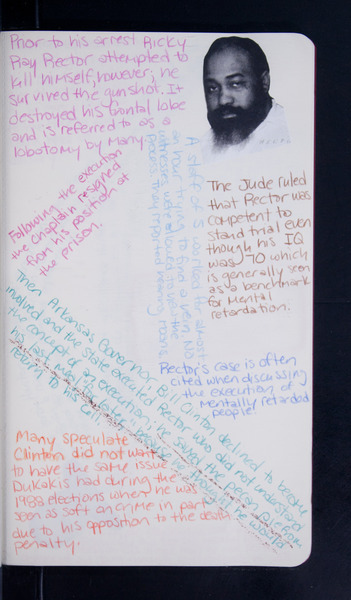 Prior to his arrest Ricky
Ray Rector attempted to
kill himself, however, he
survived the gunshot. It
destroyed his frontal lobe
and is referred to as a
lobotomy by many.
Following the execution
the chaplain resigned
from his position at
the prison.
A staff of 5 worked for almost
an hour trying to find a vein. No
witnesses were allowed to view the
process, they reported hearing moans.
The Jude ruled
that Rector was
competent to
stand trial even
though his IQ
was 70 which
is generally seen
as a benchmark
for mental
retardation.
Rector's case is often
cited when discussing
the execution of
mentally retarded
people!
Then Arkansas Governor, Bill Clinton declined to become
involved and the state executed Rector who did not understand
the concept of an execution; he saved the piece of pie from
his last meal for later because he thought he would
return to his cell.
Many speculate
Clinton did not want
to have the same issue
Dukakis had during the
1988 elections when he was
seen as soft on crime in part
due to his opposition to the death
penalty.